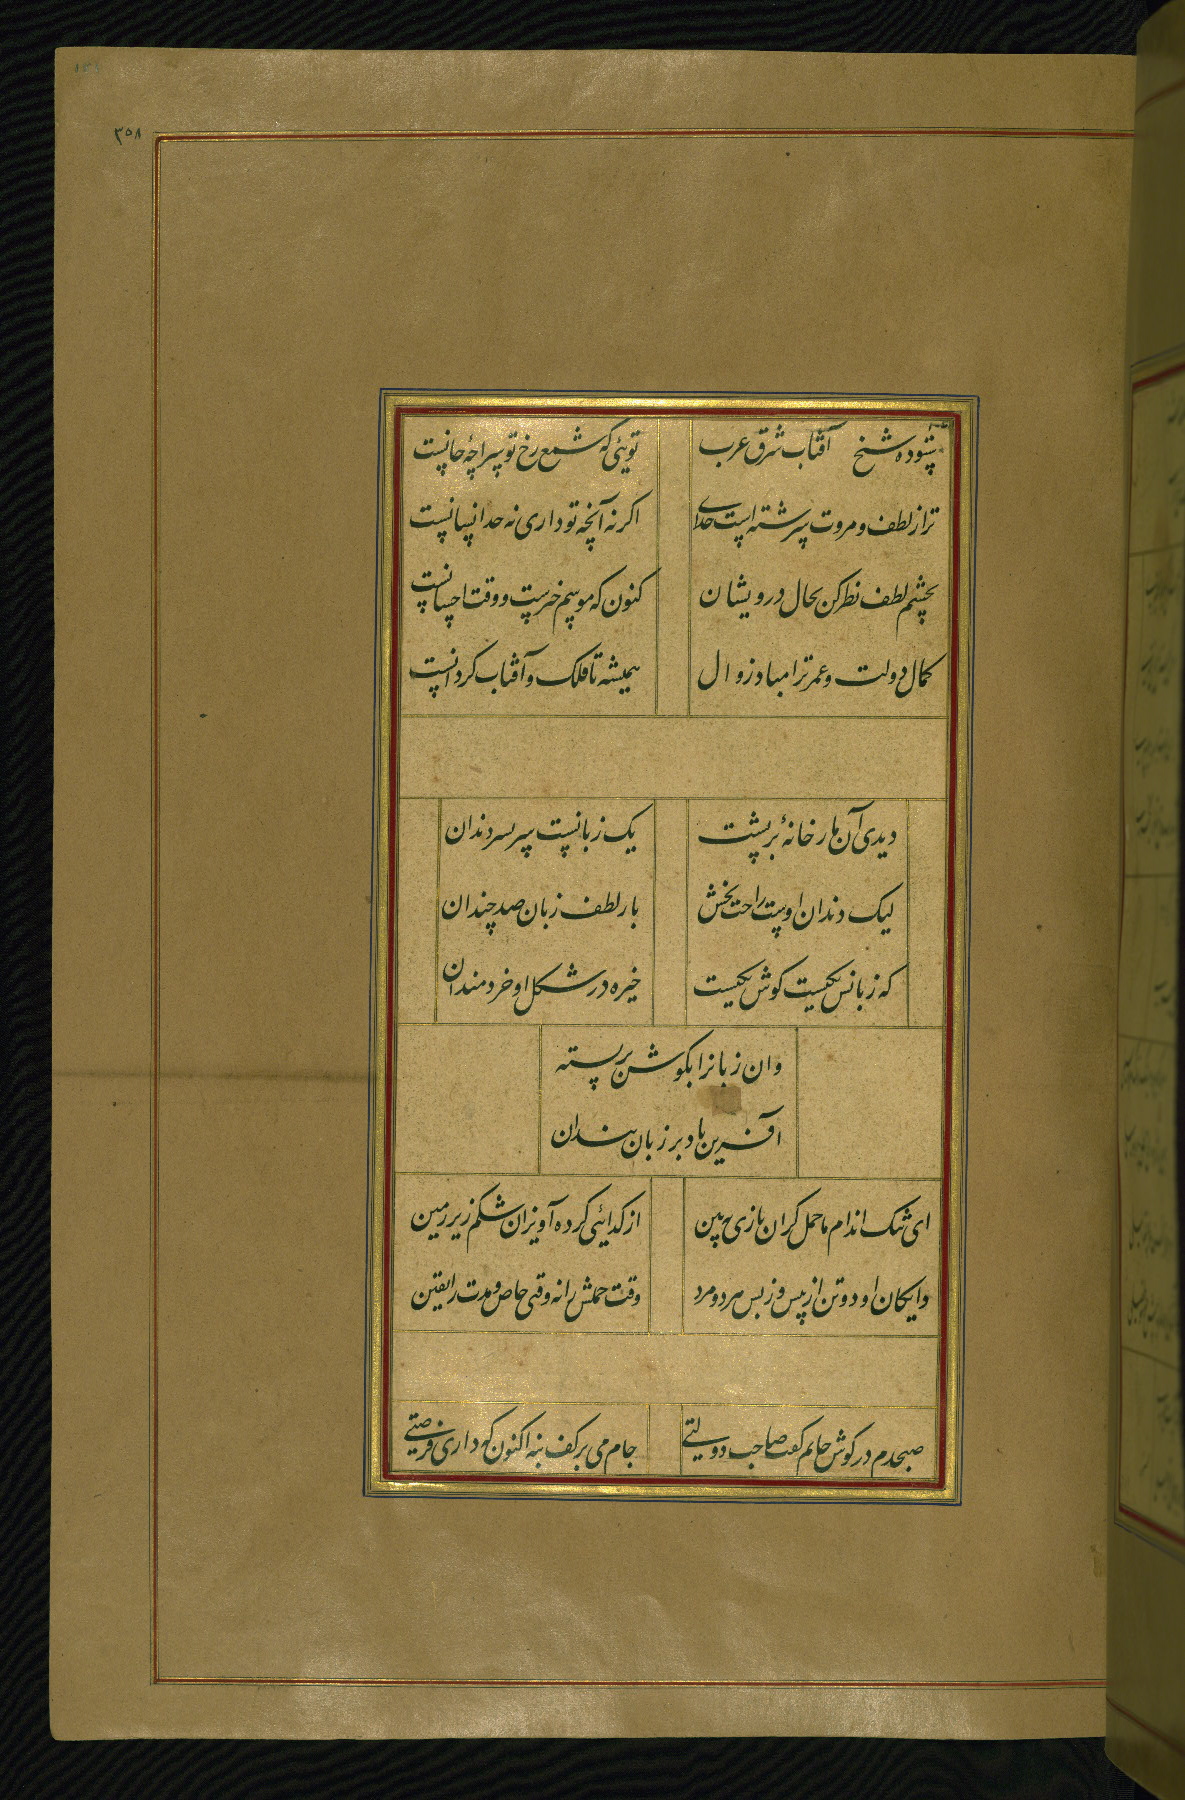 ۳۵۸
ستوده شیخ آفتاب شرق عرب
توئی که شمع رخ تو سراچهٔ جانست
ترا ز لطف و مروت سرشته است خدای
اکر نه آنچه تو داری نه حد انسانست
بچشم لطف نظر کن بحال درویشان
کنون که موسم خیرست و وقت احسانست
کمال دولت و عمر ترا مباد زوال
همیشه تا فلک و آفتاب کردانست
دیدی آن مار خانهٔ بر پشت
یک زبانست سربسر دندان
لیک دندان اوست راحت بخش
بار لطف زبان صد چندان
که زبانس یکیست کوش یکیست
خیره در شکل او خردمندان
وان زبانرا بکوشش بر بسته
آفرین باد بر زبان بندان
ای تنک اندام ما حمل کران بازی ببین
از کدائی کرده آویزان شکم زیر زمین
دایکان او دو تن از پیس و ز بس مرد و مرد
وقت حملش رانه وقتی خاص و مدت را یقین
صبحدم در کوش جانم کفت صاحب دولتی
جام می بر کف بنه اکنون که داری فرصتی